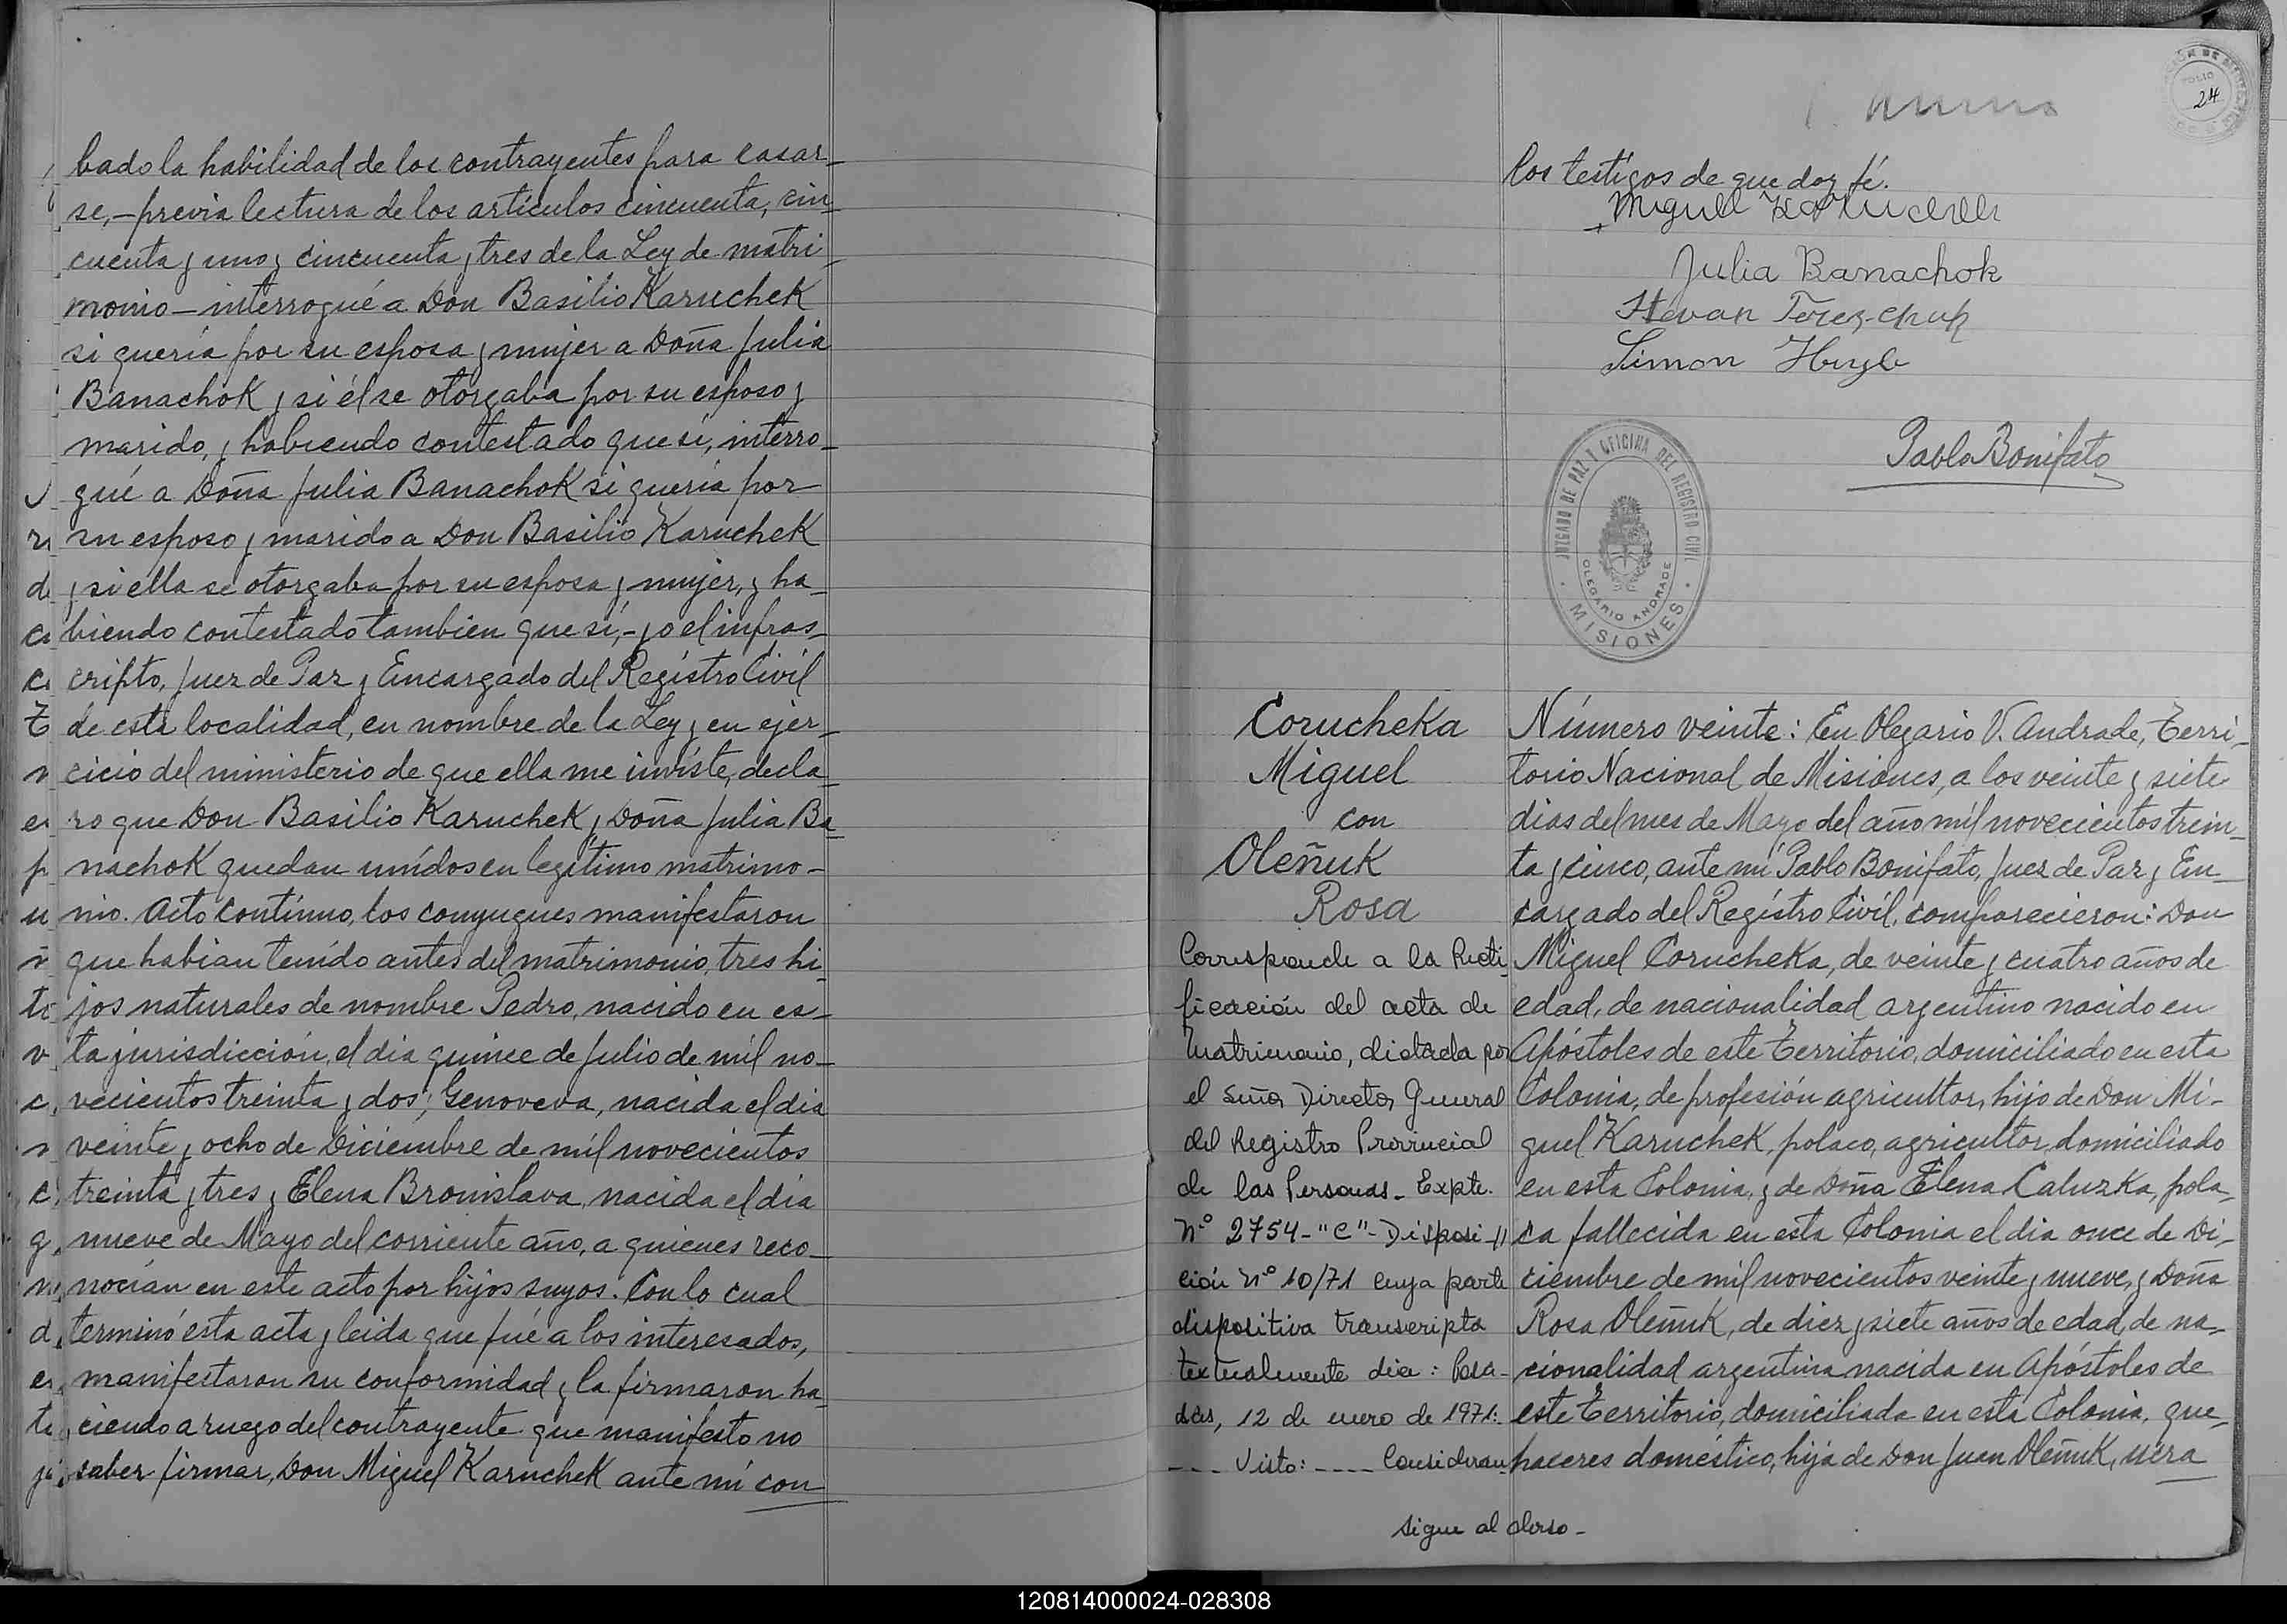 bado la habilidad de los contrayentes para casar-
se, - previa lectura de los artículos cincuenta, cin-
cuenta y uno y cincuenta y tres de la Ley de matri-
monio - interrogué a Don Basilio Karuchek
si quería por su esposa y mujer a Doña Julia
Banachok y si él se otorgaba por su esposo y
marido, y habiendo contestado que sí, interro-
gué a Doña Julia Banachok si quería por
su esposo y marido a Don Basilio Karuchek
y si ella se otorgaba por su esposa y mujer, y ha-
biendo contestado tambien que sí, - yo el infras-
cripto, Juez de Paz y Encargado del Registro Civil
de esta localidad, en nombre de la Ley y en ejer-
cicio del ministerio de que ella me inviste, decla-
ro que Don Basilio Karuchek y Doña Julia Ba-
nachok quedan unidos en legítimo matrimo-
nio. Acto contínuo, los conyugues manifestaron
que habian tenído antes del matrimonio, tres hi-
jos naturales de nombre Pedro, nacido en es-
ta jurisdicción, el dia quince de Julio de mil no-
vecientos treinta y dos; Genoveva, nacida el dia
veinte y ocho de Diciembre de mil novecientos
treinta y tres y Elena Bronislava, nacida el dia
nueve de Mayo del corriente año, a quienes reco-
nocían en este acto por hijos suyos. Con lo cual
terminó esta acta y leida que fué a los interesados,
manifestaron su conformidad y la firmaron ha-
ciendo a ruego del contrayente que manifesto no
saber firmar, Don Miguel Karuchek ante mi con
FOLIO
24
los testigos de que doy fé.
Miguel
Julia Banachok
Stevan
Simon
Pablo Bonifato
JUZGADO DE PAZ Y OFICINA DEL REGISTRO CIVIL
OLEGARIO ANDRADE
MISIONES
Corucheka
Miguel
con
Oleñuk
Rosa
Corresponde a la Recti-
ficación del acta de
Matrimonio, dictada por
el Señor Director General
del Registro Provincial
de las Personas - Expte.
Nº 2754-"C"- Disposi-
ción Nº 10/71 cuya parte
dispositiva transcripta
textualmente dice: Posa-
das, 12 de enero de 1971:
--- Visto: ---- Consideran
Número veinte: En Olegario V. Andrade, Terri-
torio Nacional de Misiones, a los veinte y siete
dias del mes de Mayo del año mil novecientos trein-
ta y cinco, ante mi Pablo Bonifato, Juez de Paz y En-
cargado del Registro Civil, comparecieron: Don
Miguel Corucheka, de veinte y cuatro años de
edad, de nacionalidad argentino nacido en
Apóstoles de este Territorio, domiciliado en esta
Colonia, de profesión agricultor, hijo de Don Mi-
guel Karuchek, polaco, agricultor, domiciliado
en esta Colonia, y de Doña Elena Caluzka, pola-
ca fallecida en esta Colonia el dia once de Di-
ciembre de mil novecientos veinte y nueve, y Doña
Rosa Oleñuk, de diez y siete años de edad, de na-
cionalidad argentina nacida en Apóstoles de
este Territorio, domiciliada en esta Colonia, que-
haceres doméstico, hija de Don Juan Oleñuk, ucra
Sigue al dorso -
120814000024-028308